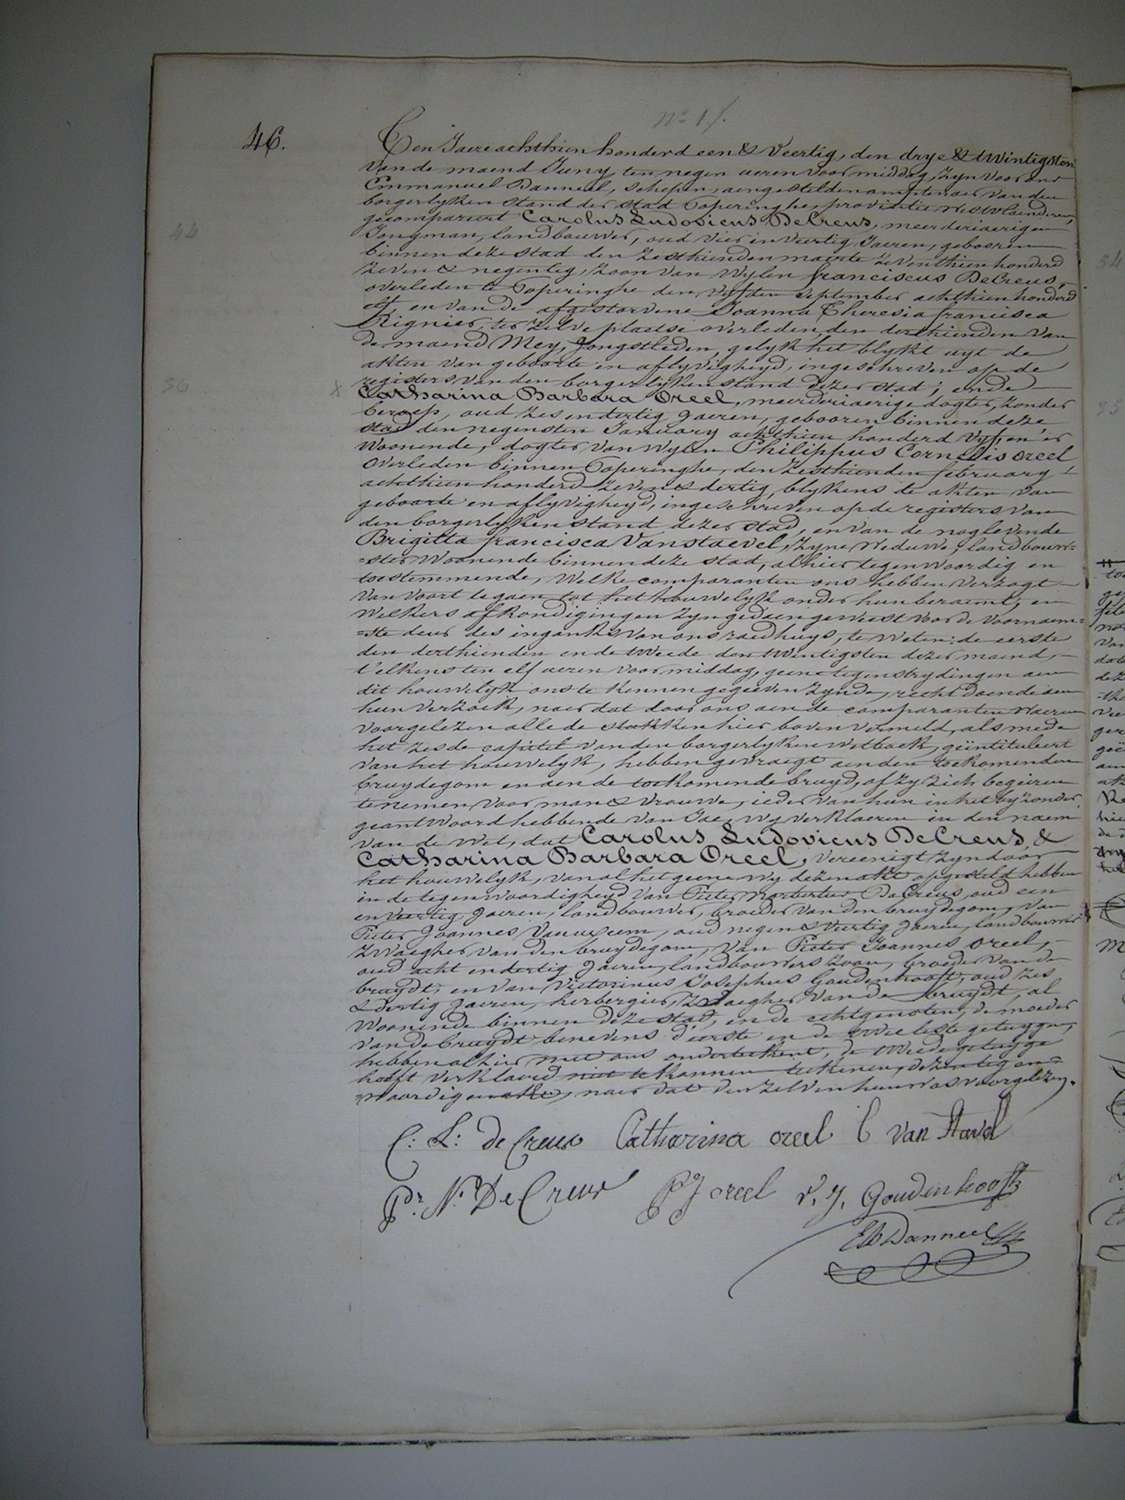 46.
n° 17.
Ten Jaere achthien honderd een & Veertig, den drye & twintigsten
van de maend Juny, ten negen ueren voor middag, zyn voor ons
Emmanuel Danneel, schepen, aengestelden amptenaer van den
borgerlyken stand der stad Poperinghe, provintie Westvlaenderen,
gecompareert Carolus Ludovicus DeCreus, meerderjaerigen
Jongman, landbouwer, oud vier en veertig Jaeren, gebooren
binnen deze stad den zesthienden maerte zeventhien honderd
zeven & negentig, zoon van wylen franciscus DeCreus,
overleden te Poperinghe den vyfden september achthien honderd
elf en van de afgestorvene Joanna Theresia francisca
Rignier, ter zelve plaetse overleden den derthienden van
de maend Mey, Jongstleden, gelyk het blykt uyt de
akten van geboorte en aflyvigheyd, ingeschreven op de
registers van den borgerlyken stand dezer stad; ende
Catharina Barbara Oreel, meerderjaerige dogter, zonder
beroep, oud zes en dertig Jaeren, gebooren binnen deze
stad den negensten January achthien honderd vyf, en er
woonende, dogter van wylen Philippus Cornelis oreel
overleden binnen Poperinghe, den zesthienden february
achthien honderd zeven & dertig, blykens de akten van
geboorte en aflyvigheyd, ingeschreven op de registers van
den borgerlyken stand dezer stad, en van de naglevende
Brigitta francisca Vanstaevel, zyne weduwe, landbouw=
=ster woonende binnen deze stad, alhier tegenwoordig en
toestemmende, Welke comparanten ons hebben verzogt
van voort te gaen tot het houwelyk onder hun beraemt, en
welkers afkondigingen zyn gedaen geweest voor de voornaem=
=ste deur des ingank's van ons raedhuys, te weten: de eerste
den derthienden en de tweede den twintigsten dezer maend,
t'elkens ten elf ueren voor middag, geene tegenstrydingen aen
dit houwelyk ons te kennen gegeeven zynde, recht doende aen
hun verzoek, naer dat door ons aen de comparanten waeren
voorgelezen alle de stukken hier boven vermeld, als mede
het zesde capittel van den borgerlyken wetboek, geïntituleert
van het houwelyk, hebben gevraegt aen den toekomenden
bruydegom en aen de toekomende bruyd, of zy zich begeeren
te nemen voor man & vrouwe, ieder van hun in het byzonder
geantwoord hebbende van Jae, wy verklaeren in den naem
van de wet, dat Carolus Ludovicus DeCreus &
Catharina Barbara Oreel, vereenigt zyn door
het houwelyk, van al het geene wy deze akt opgesteld hebben
in de tegenwoordigheyd van Pieter Norbertus DeCreus, oud een
en veertig Jaeren, landbouwer, broeder van den bruydegom, van
Pieter Joannes Vanuxem, oud negen & veertig Jaeren, landbouwer
zwaegher van den bruydegom, van Pieter Joannes oreel,
oud acht en dertig Jaeren, landbouwers zoon, broeder van de
bruydt; en van Victorinus Josephus Goudenhooft, oud zes
& dertig Jaeren, herbergier, zwaegher van de bruydt, al
woonende binnen deze stad, en de echtgenoten, de moeder
van de bruydt benevens d'eerste en de twee leste getuygen
hebben alhier met ons onderteekent, de tweede getuyge
heeft verklaerd niet te konnen teekenen, deze tegen=
=woordige akte, naer dat den zelven hun was voorgelezen.
C: L: de Creus Catharina oreel B van Stavel
Pr. N. DeCreus PJ oreel V. J. Goudenhooft
EDanneel